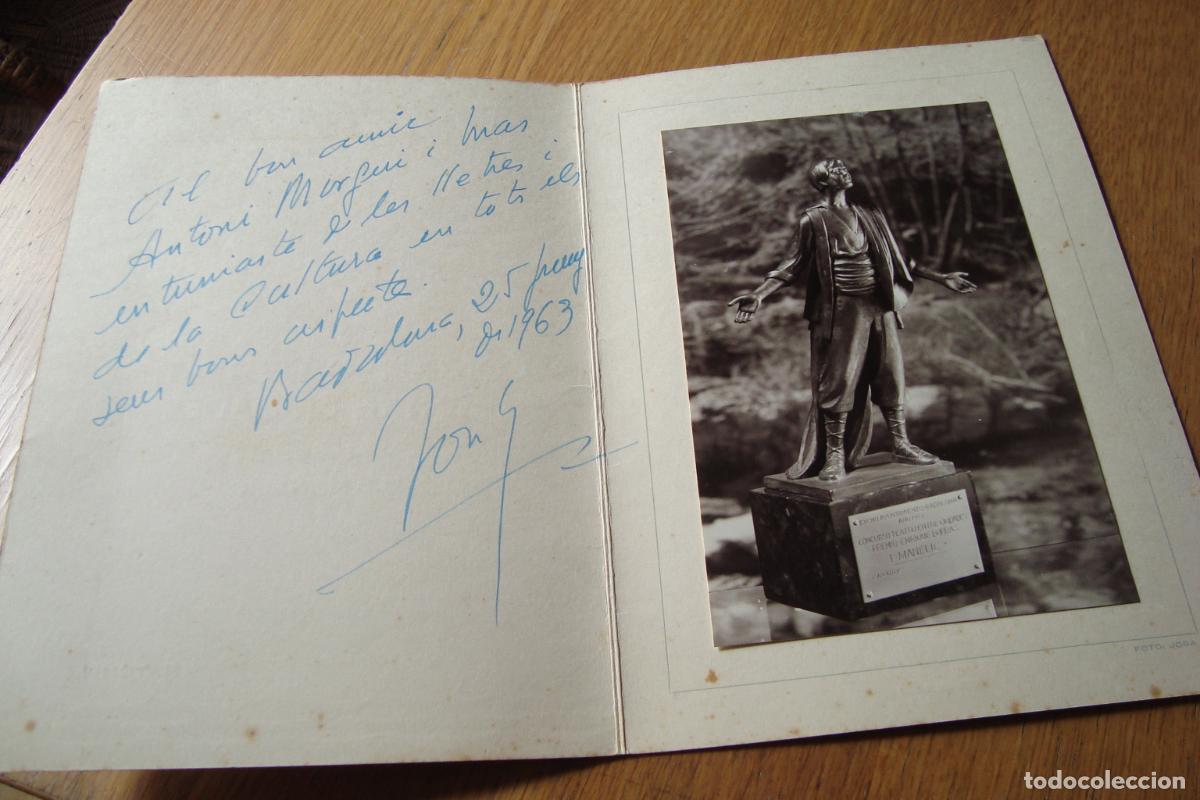 Al bon amic
Antoni Morgui i mas
entusiasta de les lletres i
de la Cultura en tots els
seus bons aspecte.
Badalona, 25 juny
de 1963
CONCURSO TEATRO
PREMIO ENRIQUE
FOTO: JOSA
todocoleccion